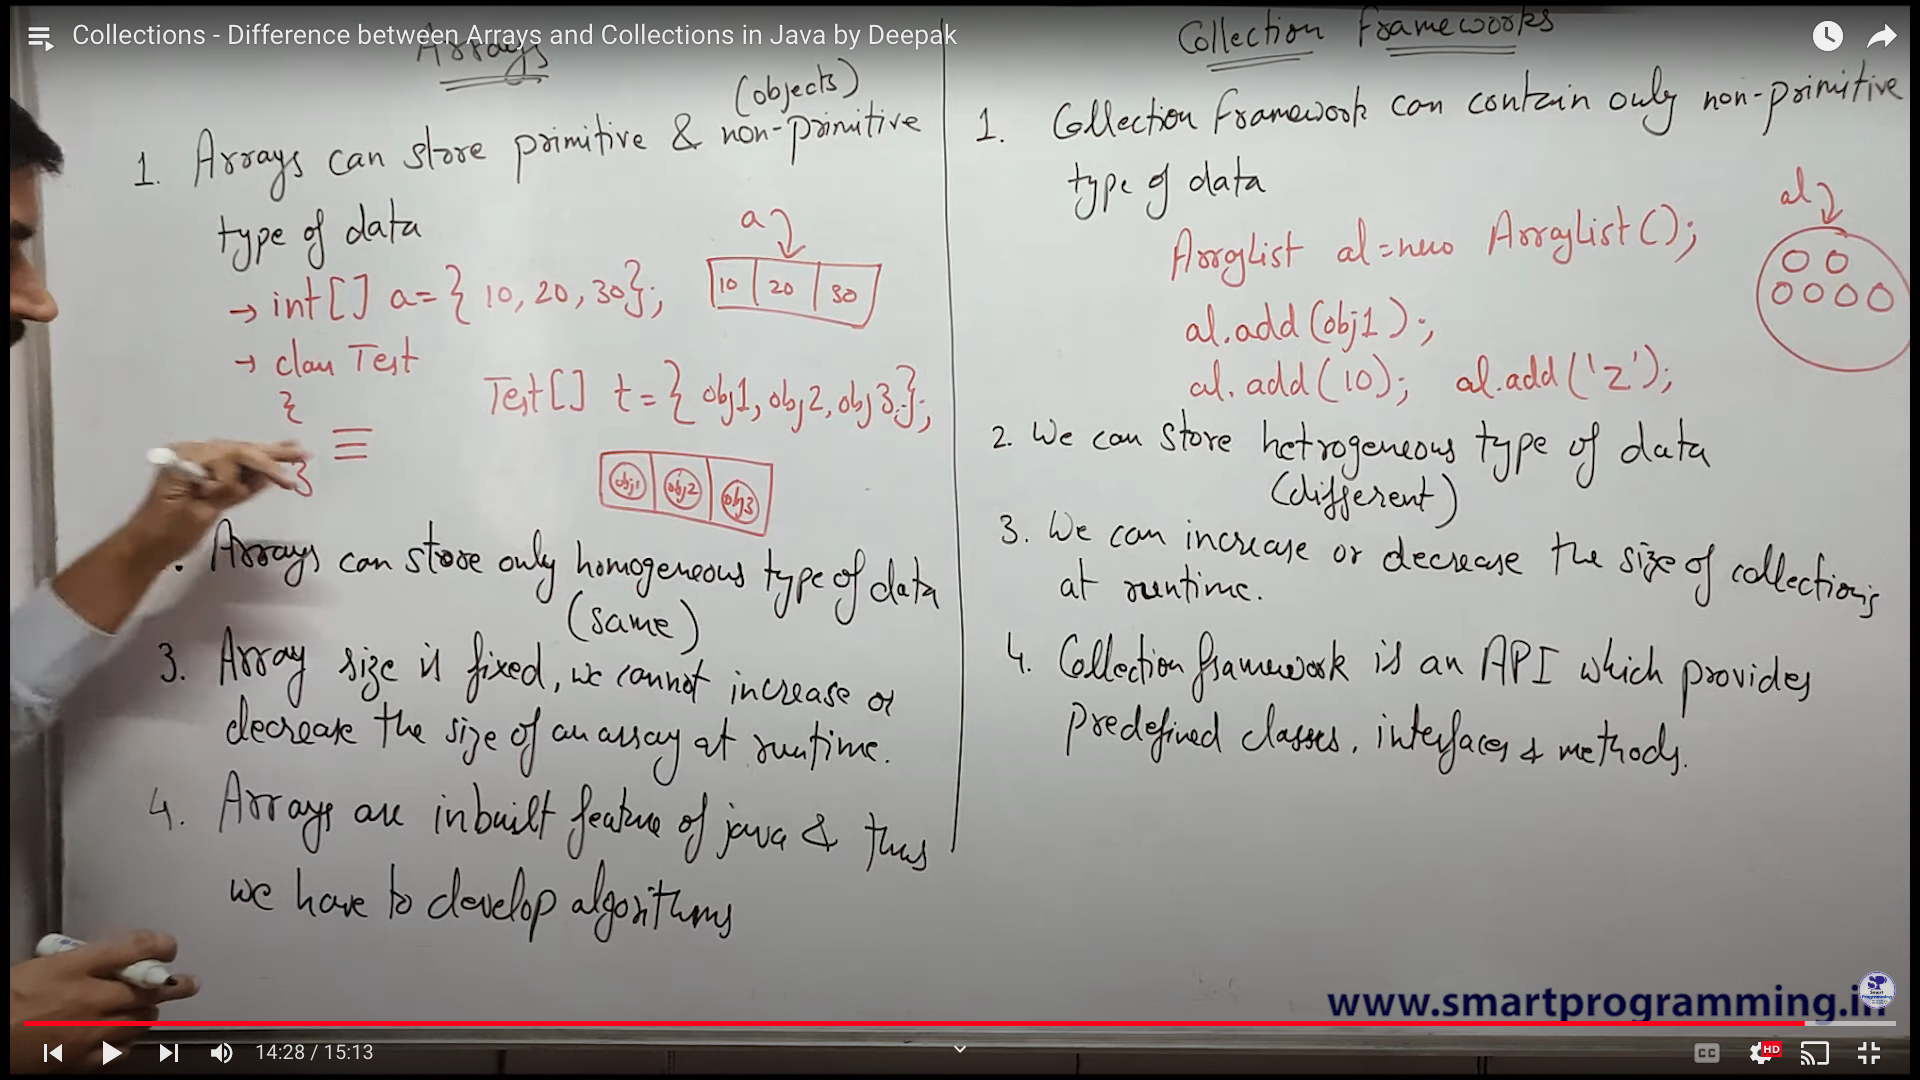 Collections - Difference between Arrays and Collections in Java by Deepak
Arrays
(objects)
1. Arrays can store primitive & non-primitive
type of data
a
→ int[] a={ 10, 20, 30};
10 20 30
→ class Test
{
}
Test[] t={ obj1, obj2, obj3};
obj1 obj2 obj3
. Arrays can store only homogeneous type of data
(same)
3. Array size is fixed, we cannot increase or
decrease the size of an array at runtime.
4. Arrays are inbuilt feature of java & thus
we have to develop algorithms
Collection Frameworks
1. Collection Framework can contain only non-primitive
type of data
al
ArrayList al=new ArrayList();
al.add(obj1);
al.add(10); al.add('z');
2. We can store hetrogeneous type of data
(different)
3. We can increase or decrease the size of collections
at runtime.
4. Collection framework is an API which provides
predefined classes, interfaces & methods.
www.smartprogramming.in
14:28 / 15:13
CC
HD